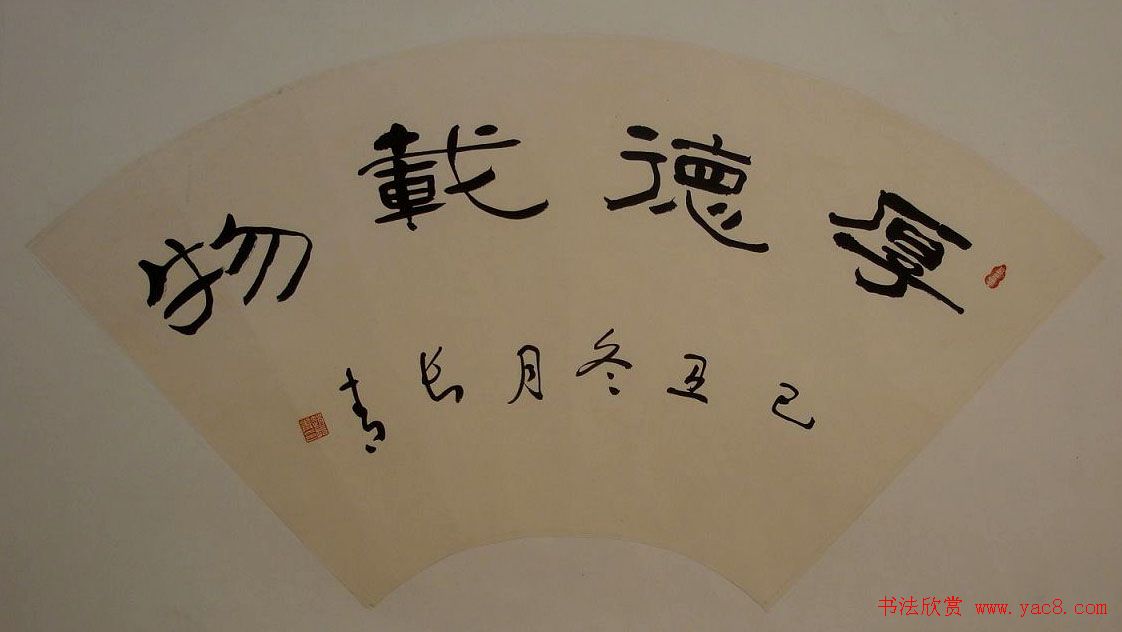 厚德載物
己丑冬月長青
书法欣赏 www.yac8.com